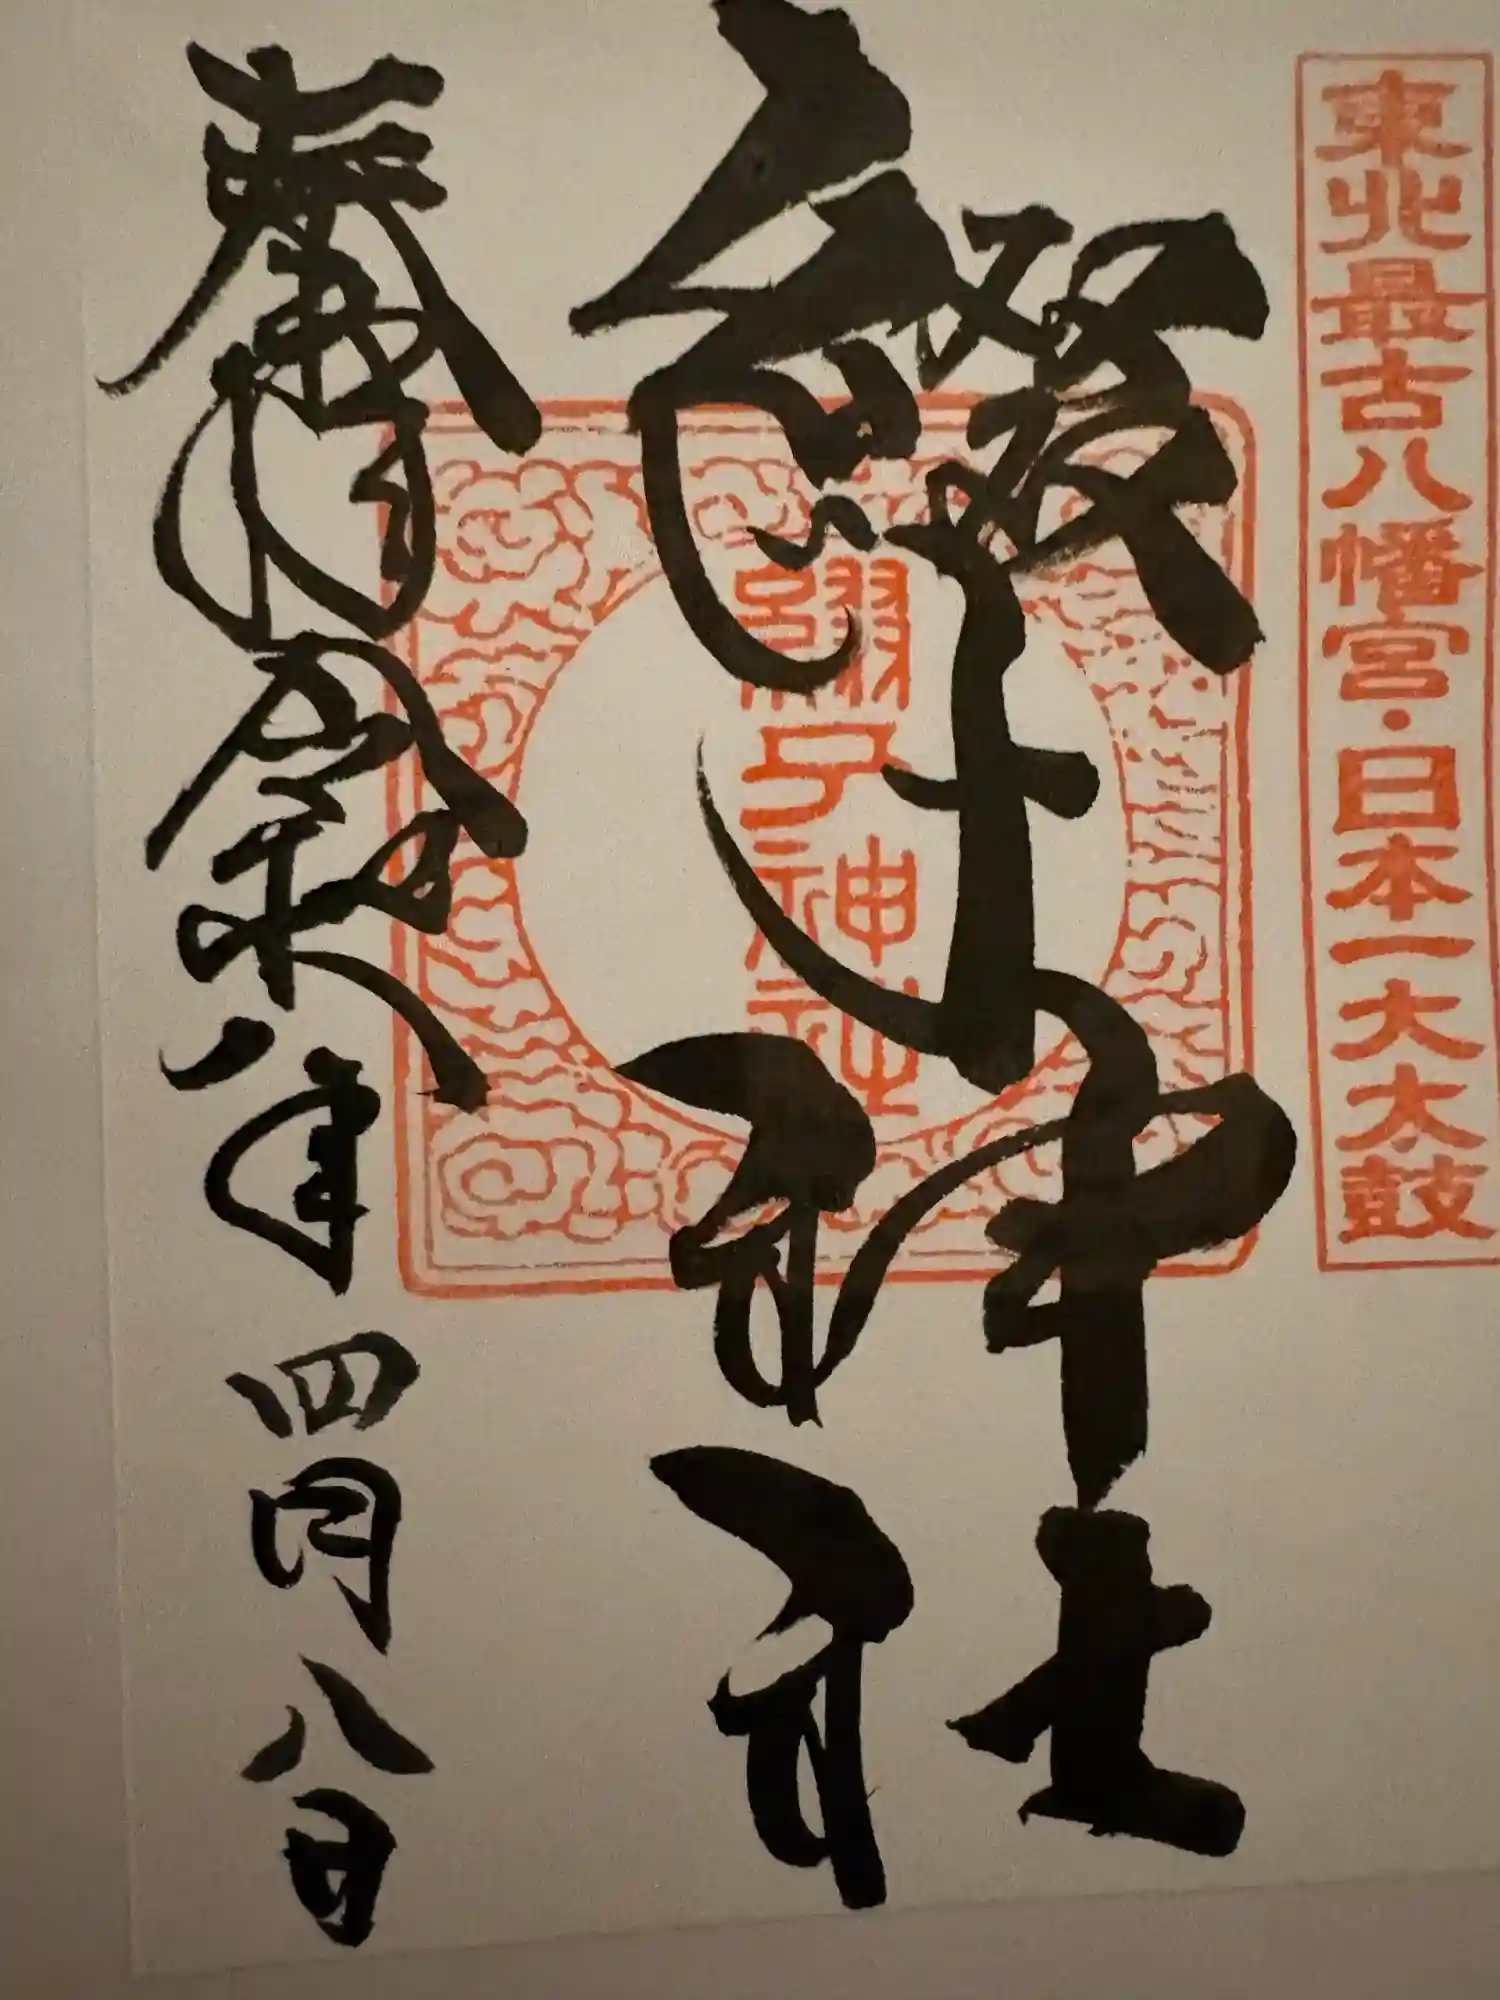 東北最古八幡宮・日本一大太鼓
綴子神社
綴子神社
奉拝 令和八年四月八日